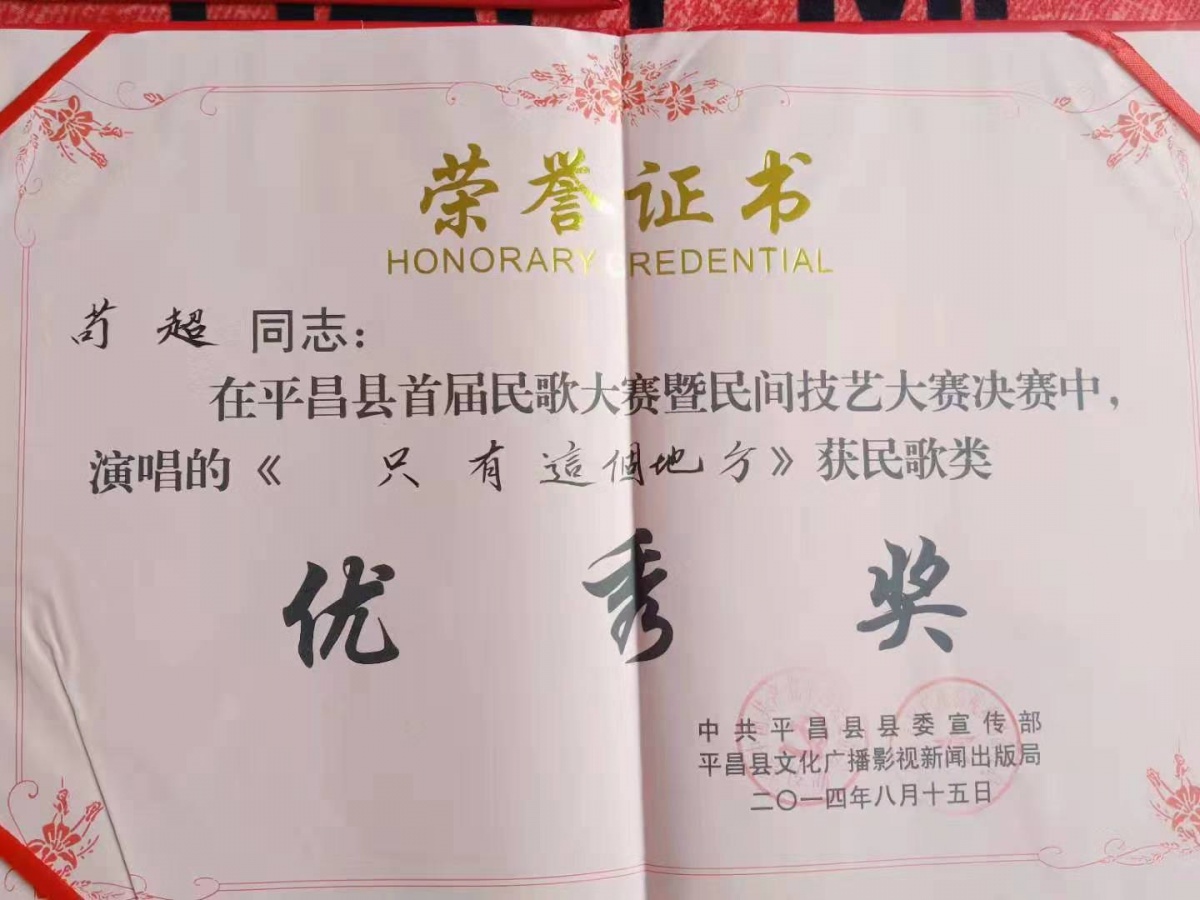 荣誉证书
HONORARY CREDENTIAL
苟超同志：
在平昌县首届民歌大赛暨民间技艺大赛决赛中，
演唱的《只有這個地方》获民歌类
优秀奖
中共平昌县县委宣传部
平昌县文化广播影视新闻出版局
二〇一四年八月十五日